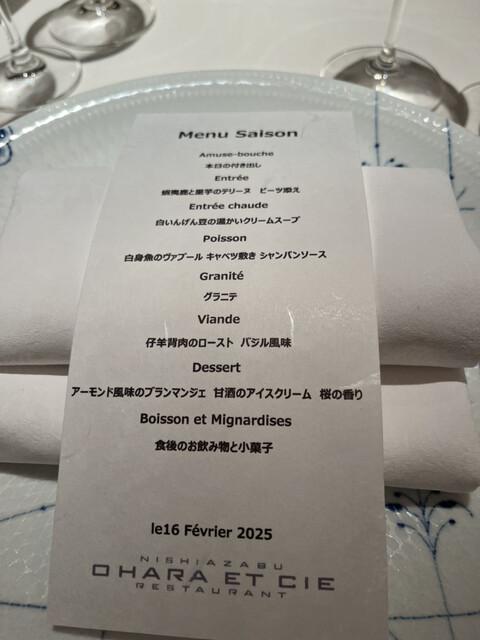 Menu Saison
Amuse-bouche
本日の付き出し
Entrée
蝦夷鹿と栗芋のテリーヌ ビーツ添え
Entrée chaude
白いんげん豆の温かいクリームスープ
Poisson
白身魚のヴァプール キャベツ敷き シャンパンソース
Granité
グラニテ
Viande
仔羊背肉のロースト バジル風味
Dessert
アーモンド風味のブランマンジェ 甘酒のアイスクリーム 桜の香り
Boisson et Mignardises
食後のお飲み物と小菓子
le16 Février 2025
NISHIAZABU
OHARA ET CIE
RESTAURANT